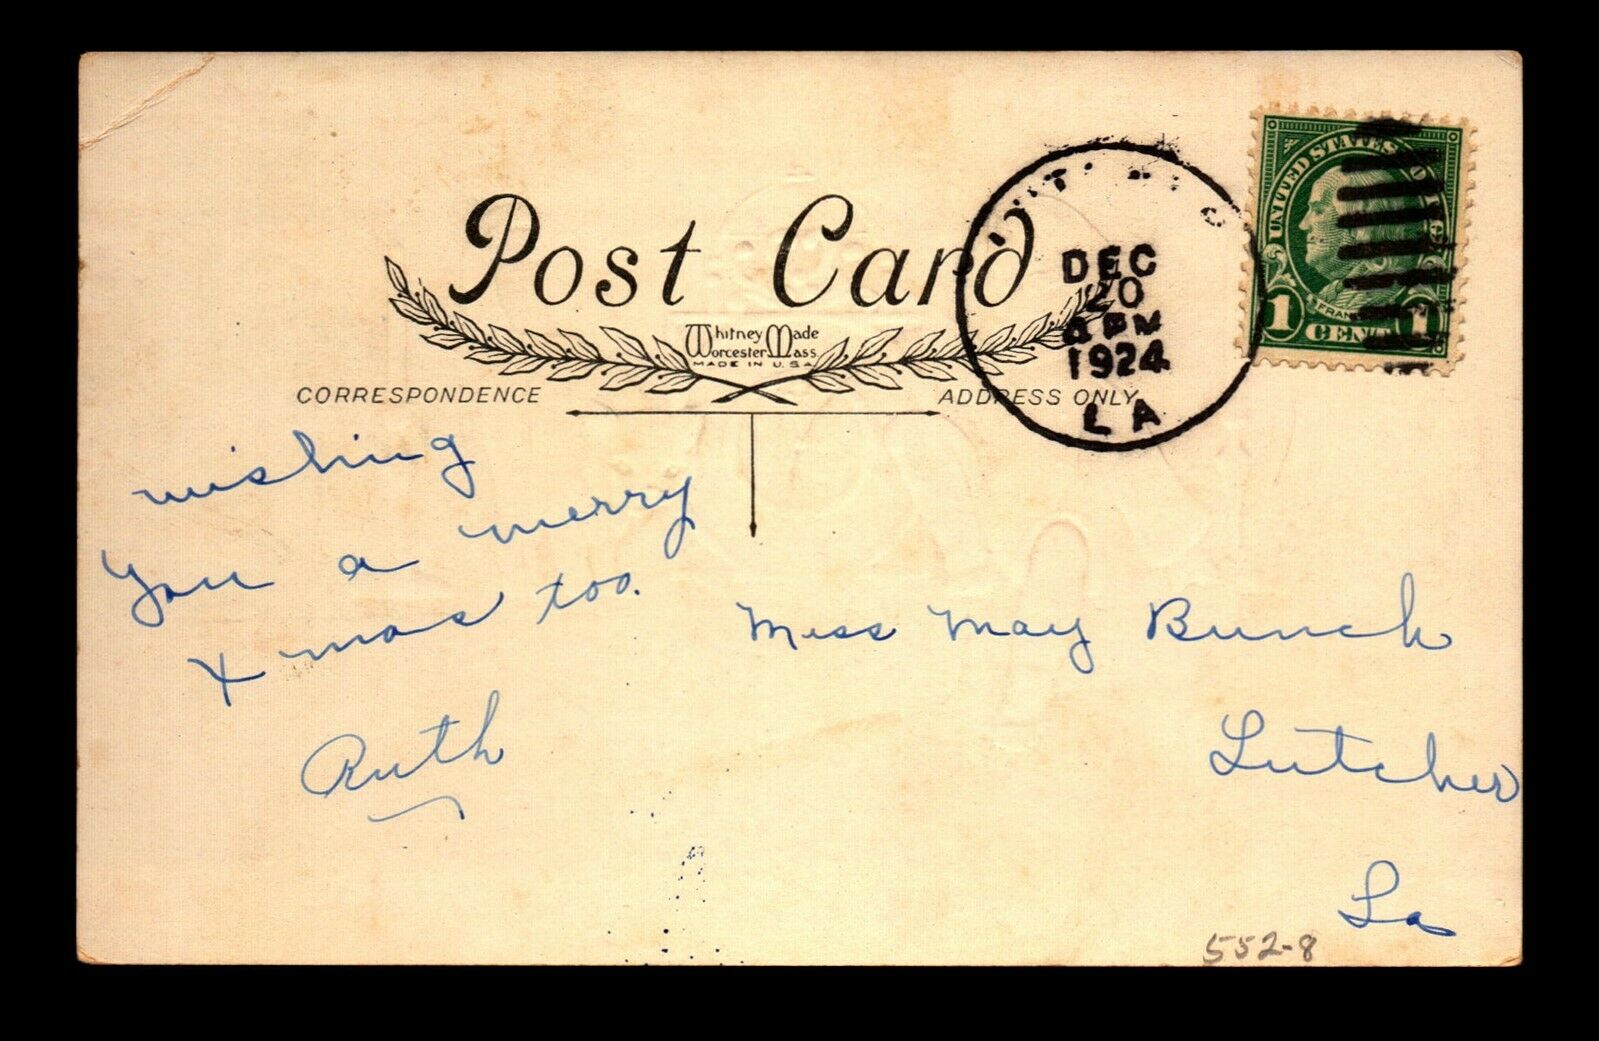 Post Card
Whitney Made
Worcester Mass.
MADE IN U.S.A.
CORRESPONDENCE
ADDRESS ONLY
DEC
20
PM
1924
LA
UNITED STATES
FRAN
1 CENT 1
wishing
you a merry
Xmas too.
Ruth
Miss May Bunch
Lutcher
La
552-8